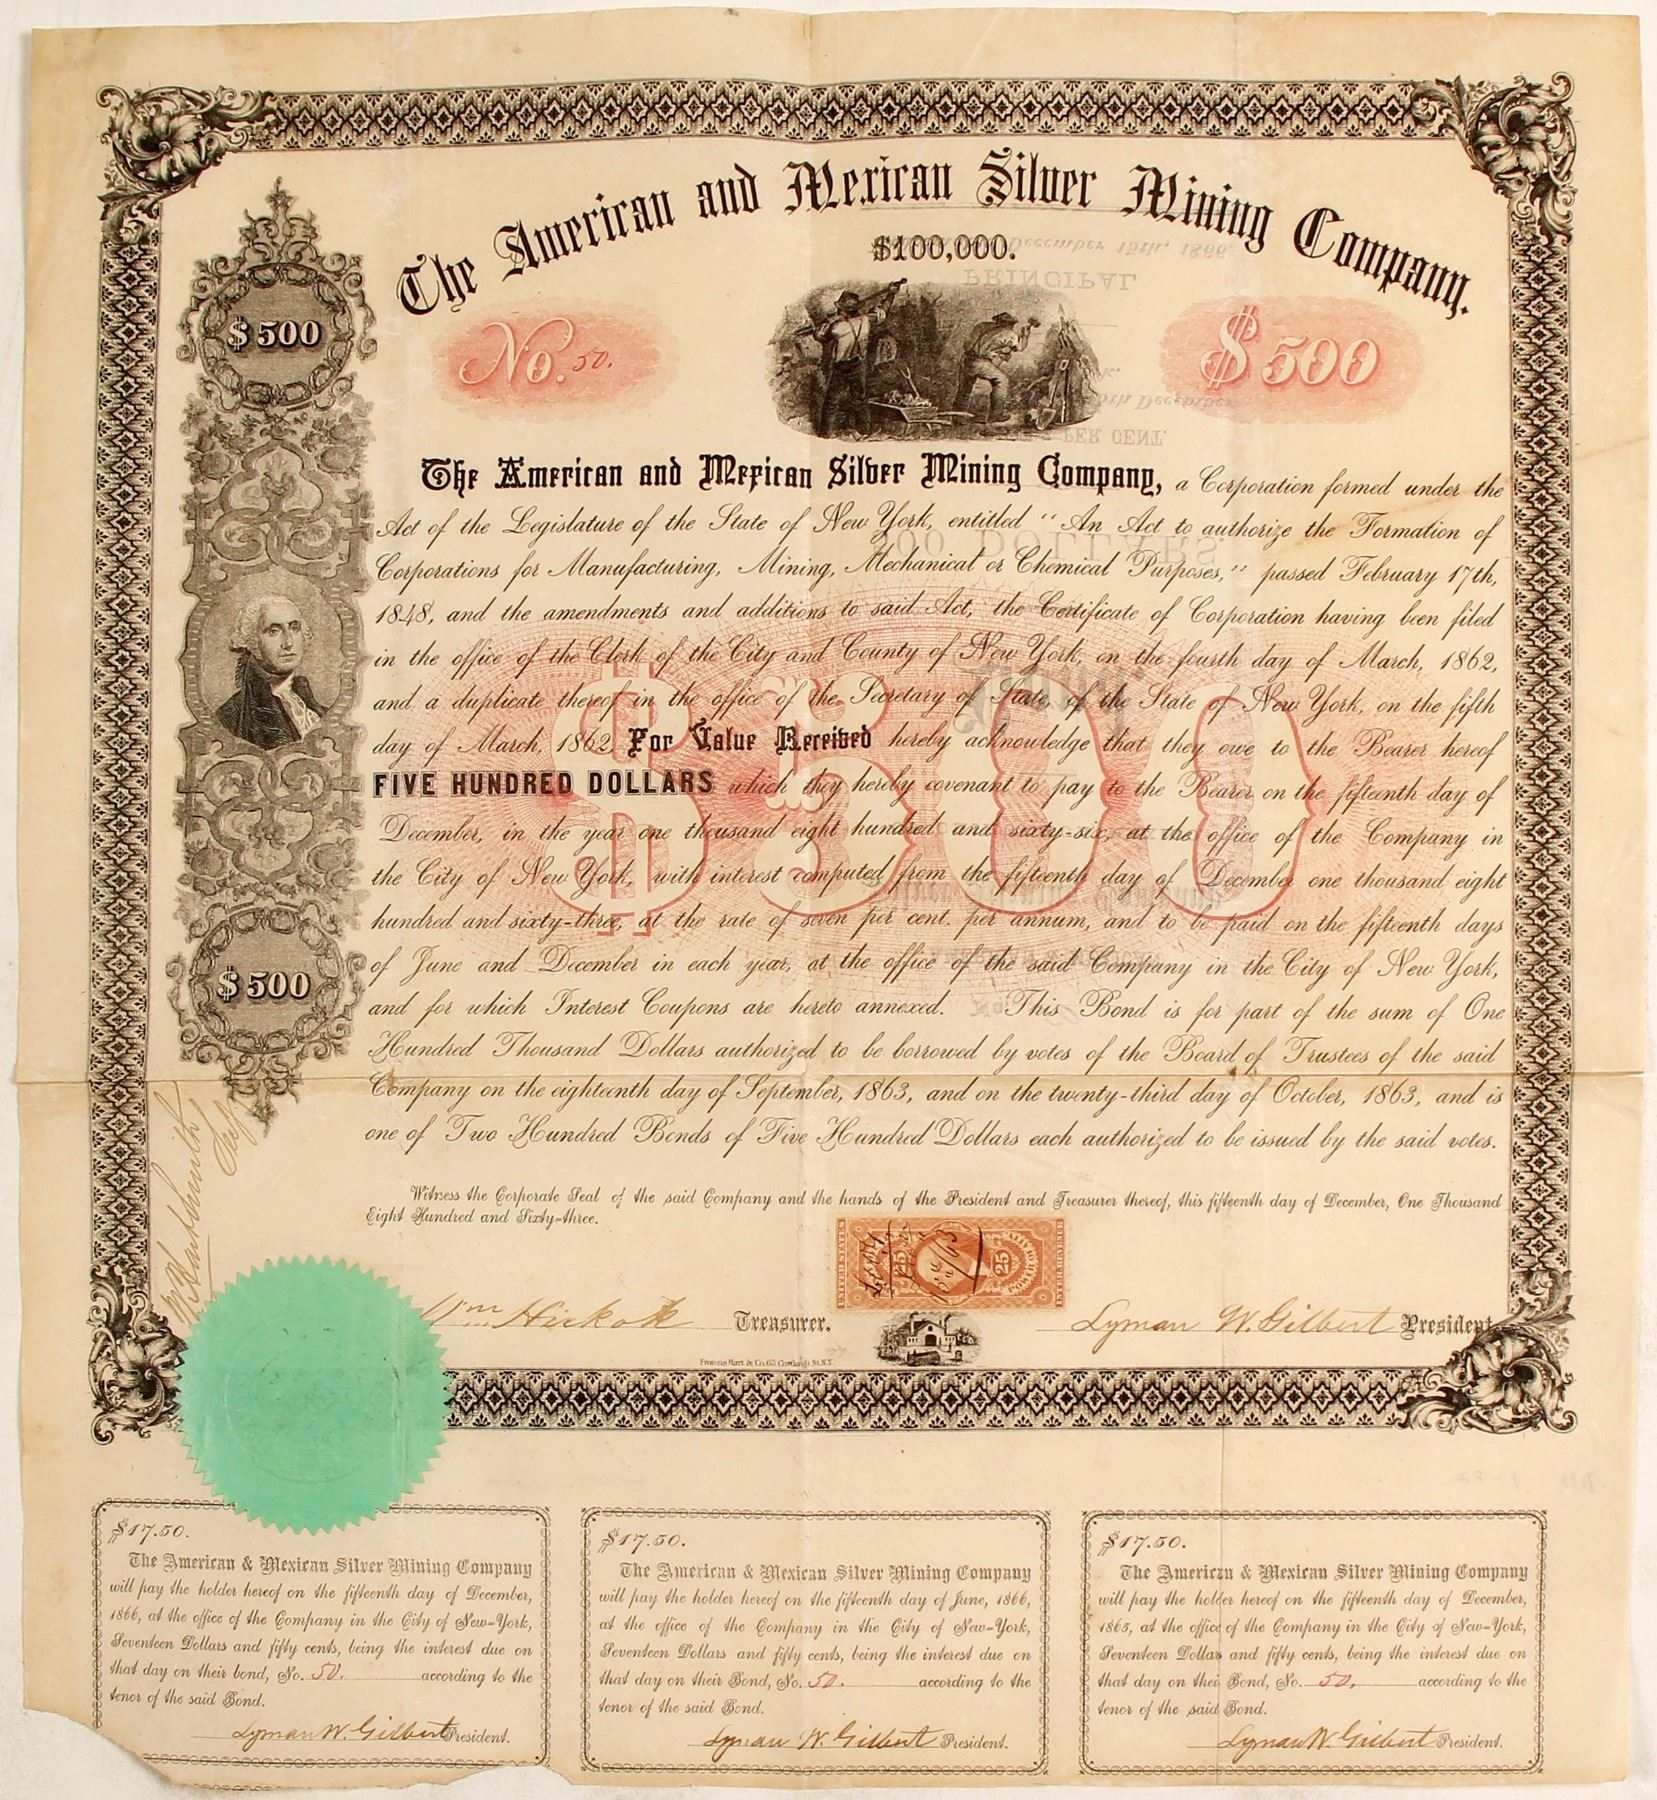 The American and Mexican Silver Mining Company.
$100,000.
$500
No. 50.
$500
The American and Mexican Silver Mining Company, a Corporation formed under the
Act of the Legislature of the State of New York, entitled "An Act to authorize the Formation of
Corporations for Manufacturing, Mining, Mechanical or Chemical Purposes," passed February 17th,
1848, and the amendments and additions to said Act, the Certificate of Corporation having been filed
in the office of the Clerk of the City and County of New York, on the fourth day of March, 1862,
and a duplicate thereof in the office of the Secretary of State, of the State of New York, on the fifth
day of March, 1862. For Value Received hereby acknowledge that they owe to the Bearer hereof
FIVE HUNDRED DOLLARS which they hereby covenant to pay to the Bearer on the fifteenth day of
December, in the year one thousand eight hundred and sixty-six, at the office of the Company in
the City of New York, with interest computed from the fifteenth day of December one thousand eight
hundred and sixty-three, at the rate of seven per cent. per annum, and to be paid on the fifteenth days
of June and December in each year, at the office of the said Company in the City of New York,
and for which Interest Coupons are hereto annexed. This Bond is for part of the sum of One
Hundred Thousand Dollars authorized to be borrowed by votes of the Board of Trustees of the said
Company on the eighteenth day of September, 1863, and on the twenty-third day of October, 1863, and is
one of Two Hundred Bonds of Five Hundred Dollars each authorized to be issued by the said votes.
$500
$500
Witness the Corporate Seal of the said Company and the hands of the President and Treasurer thereof, this fifteenth day of December, One Thousand
Eight Hundred and Sixty-three.
UNITED STATES
25 25
INTER REVENUE
Wm Hickok Treasurer.
Lyman W. Gilbert President
Francis Hart & Co. 63 Cortlandt St. N.Y.
$17.50.
The American & Mexican Silver Mining Company
will pay the holder hereof on the fifteenth day of December,
1866, at the office of the Company in the City of New-York,
Seventeen Dollars and fifty cents, being the interest due on
that day on their bond, No. 50. according to the
tenor of the said Bond.
Lyman W. Gilbert President.
$17.50.
The American & Mexican Silver Mining Company
will pay the holder hereof on the fifteenth day of June, 1866,
at the office of the Company in the City of New-York,
Seventeen Dollars and fifty cents, being the interest due on
that day on their Bond, No. 50. according to the
tenor of the said Bond.
Lyman W. Gilbert President.
$17.50.
The American & Mexican Silver Mining Company
will pay the holder hereof on the fifteenth day of December,
1865, at the office of the Company in the City of New-York,
Seventeen Dollars and fifty cents, being the interest due on
that day on their Bond, No. 50. according to the
tenor of the said Bond.
Lyman W. Gilbert President.